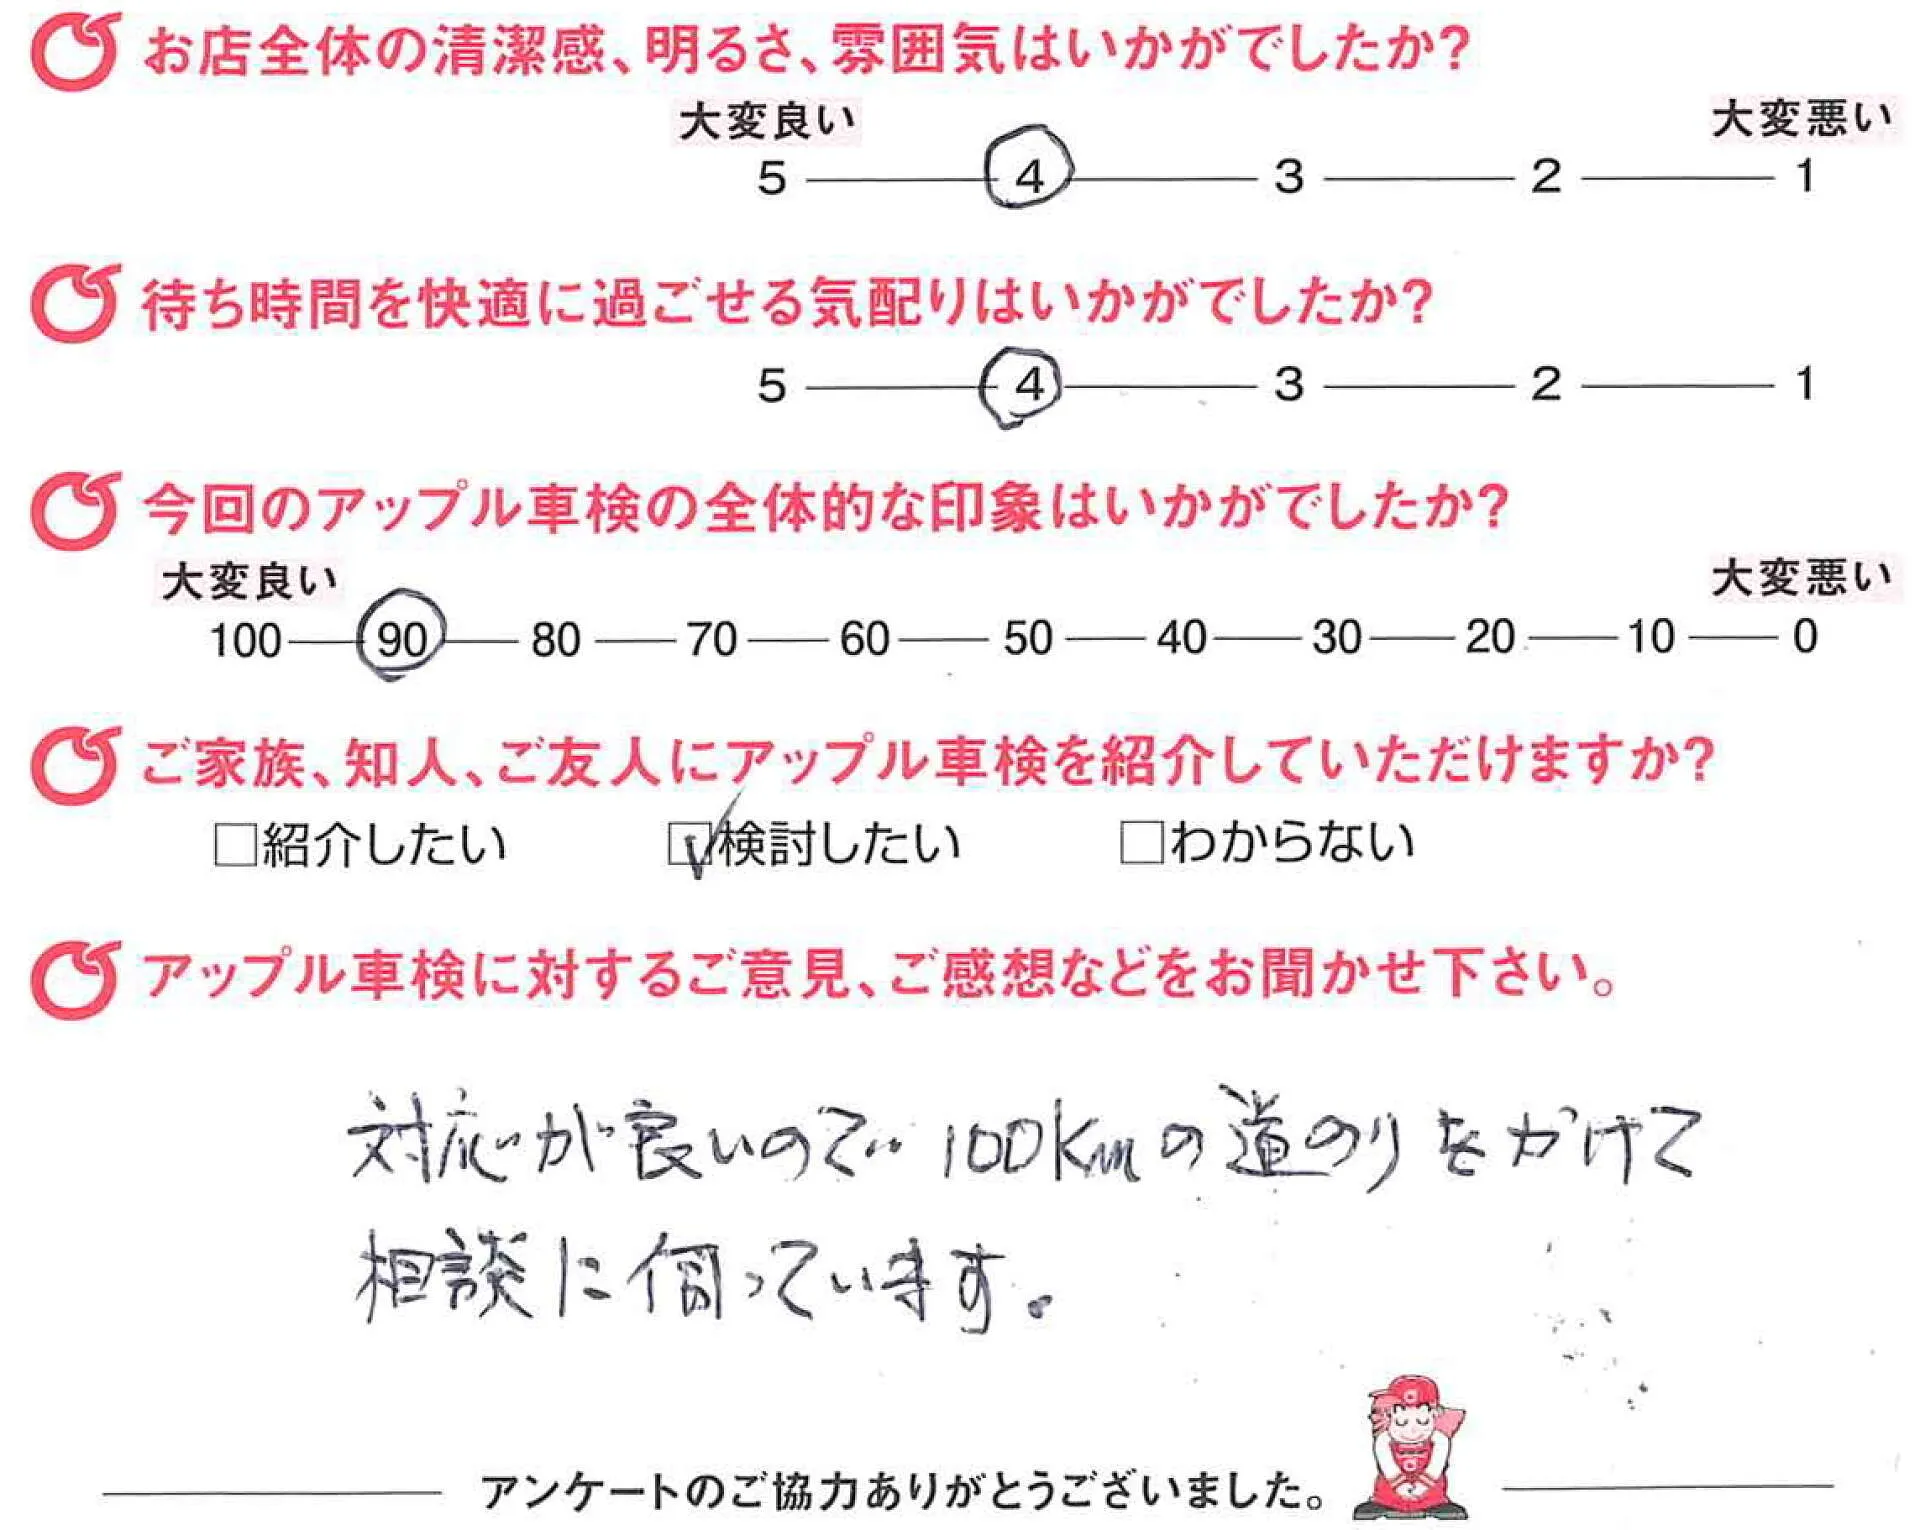 お店全体の清潔感、明るさ、雰囲気はいかがでしたか?
大変良い 大変悪い
5 4 3 2 1
待ち時間を快適に過ごせる気配りはいかがでしたか?
5 4 3 2 1
今回のアップル車検の全体的な印象はいかがでしたか?
大変良い 大変悪い
100 90 80 70 60 50 40 30 20 10 0
ご家族、知人、ご友人にアップル車検を紹介していただけますか?
□紹介したい ☑検討したい □わからない
アップル車検に対するご意見、ご感想などをお聞かせ下さい。
対応が良いので 100Kmの道のりをかけて
相談に伺っています。
アンケートのご協力ありがとうございました。